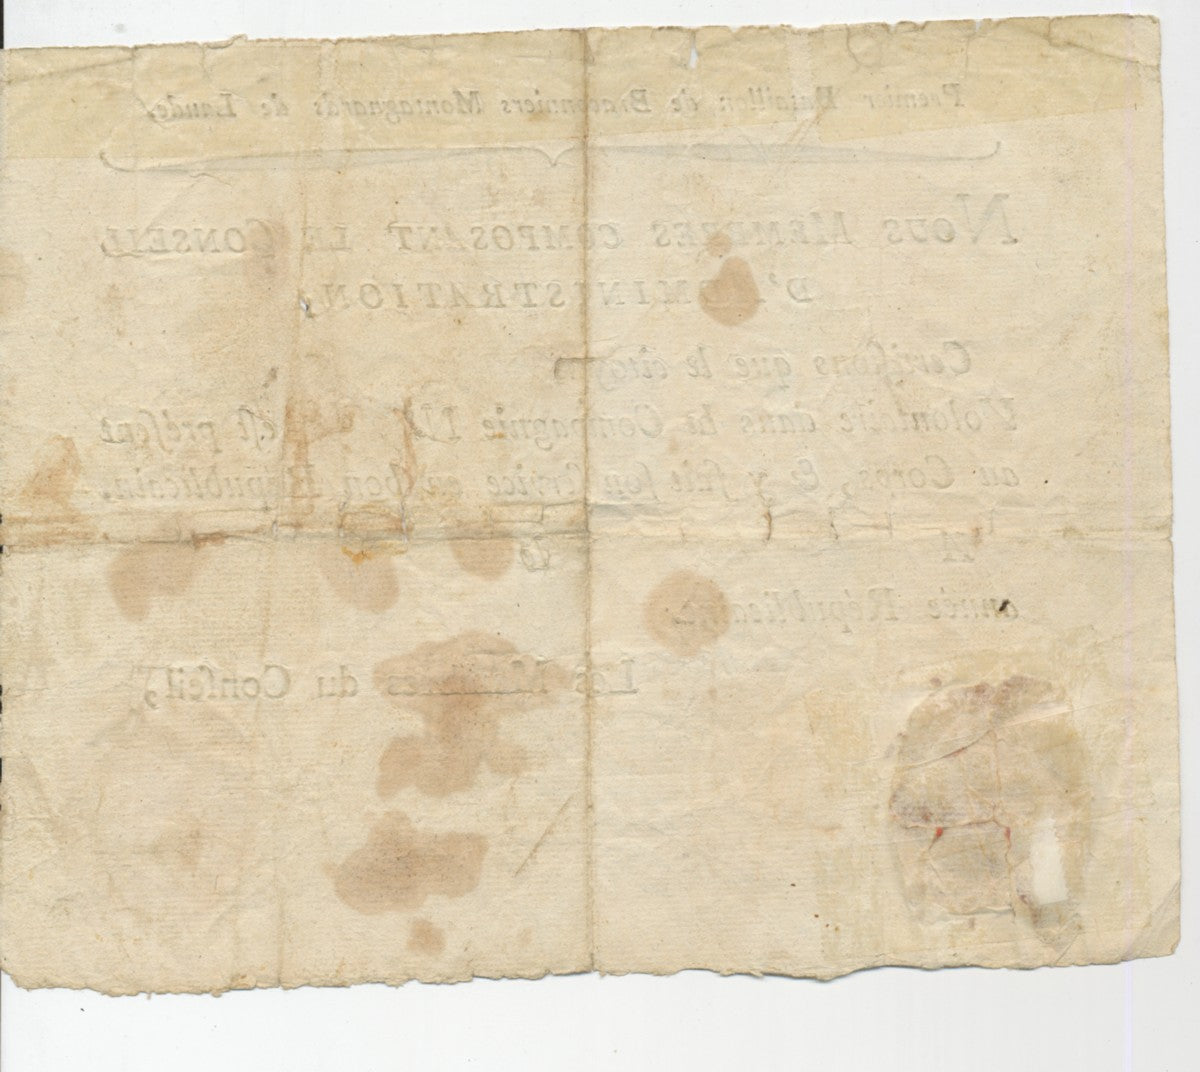 Premier Bataillon de Braconniers Montagnards de Laude,
NOUS MEMBRES COMPOSANT LE CONSEIL
D'ADMINISTRATION,
Certifions que le citoyen
Volontaire dans la Compagnie N. est préſent
au Corps, & y fait ſon ſervice en bon Républicain.
A
année Républicaine.
Les Membres du Conſeil,